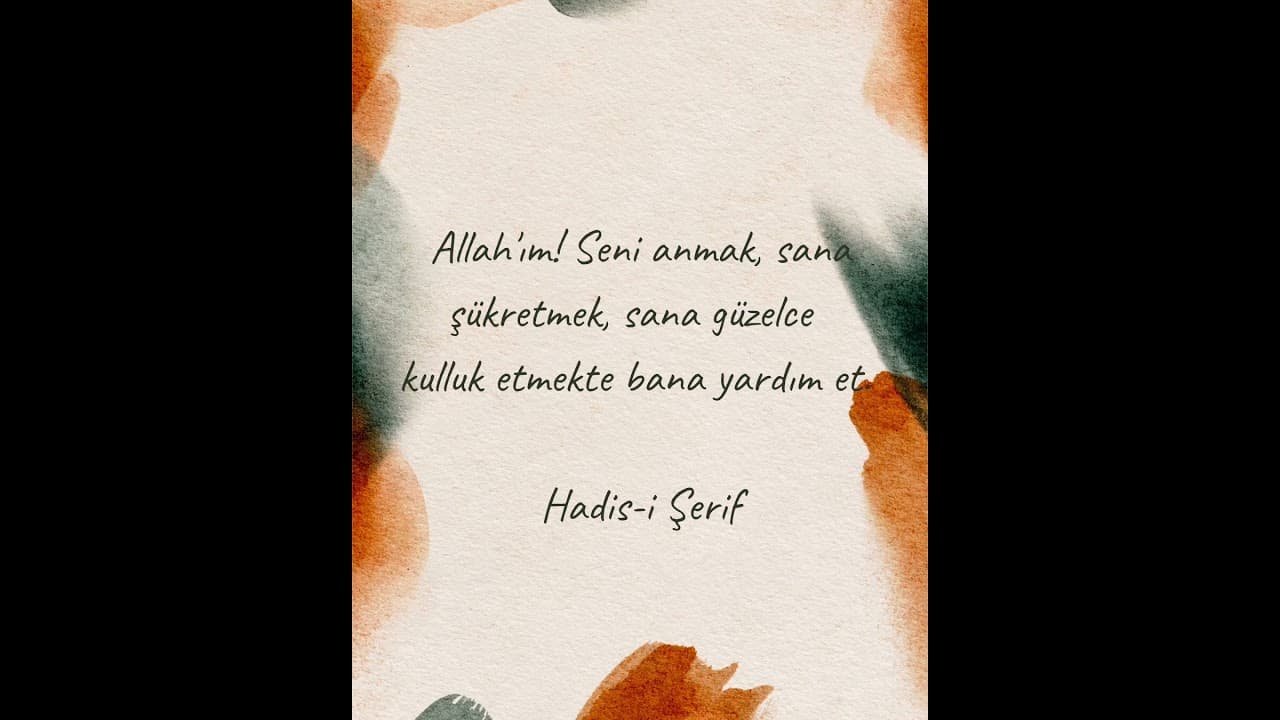 Allah'ım! Seni anmak, sana
şükretmek, sana güzelce
kulluk etmekte bana yardım et.
Hadis-i Şerif